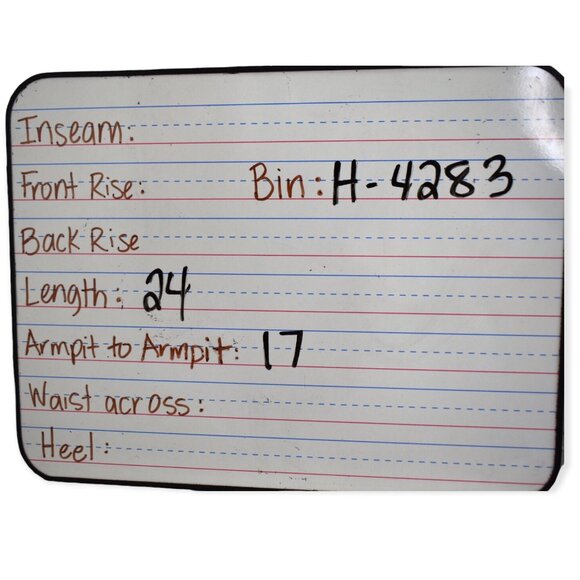 Inseam:
Front Rise: Bin: H-4283
Back Rise
Length: 24
Armpit to Armpit: 17
Waist across:
Heel: